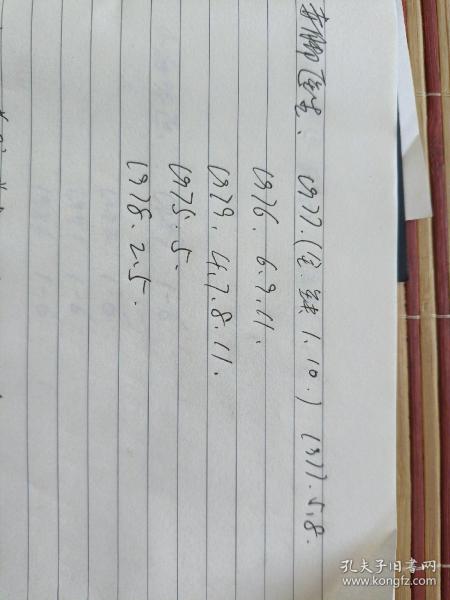 赤脚医生. 1977.(全. 缺1.10.) 1977.5.8.
1976. 6.9.11.
1979. 4.7.8.11.
1975. 5.
1978. 2.5.
孔夫子旧书网
www.kongfz.com